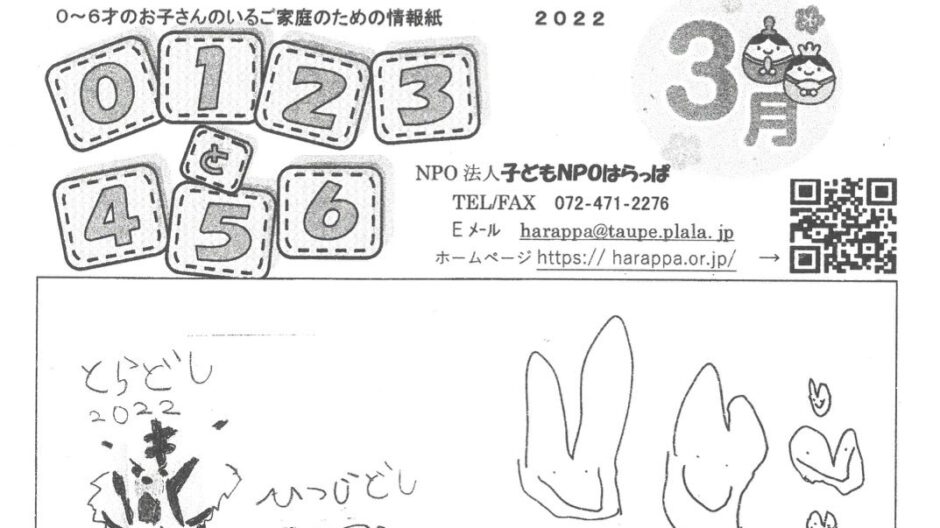 0～6才のお子さんのいるご家庭のための情報紙
2022
0123
と
456
3月
NPO法人子どもNPOはらっぱ
TEL/FAX 072-471-2276
Eメール harappa@taupe.plala.jp
ホームページ https:// harappa.or.jp/ →
とらどし
2022
ひつじどし